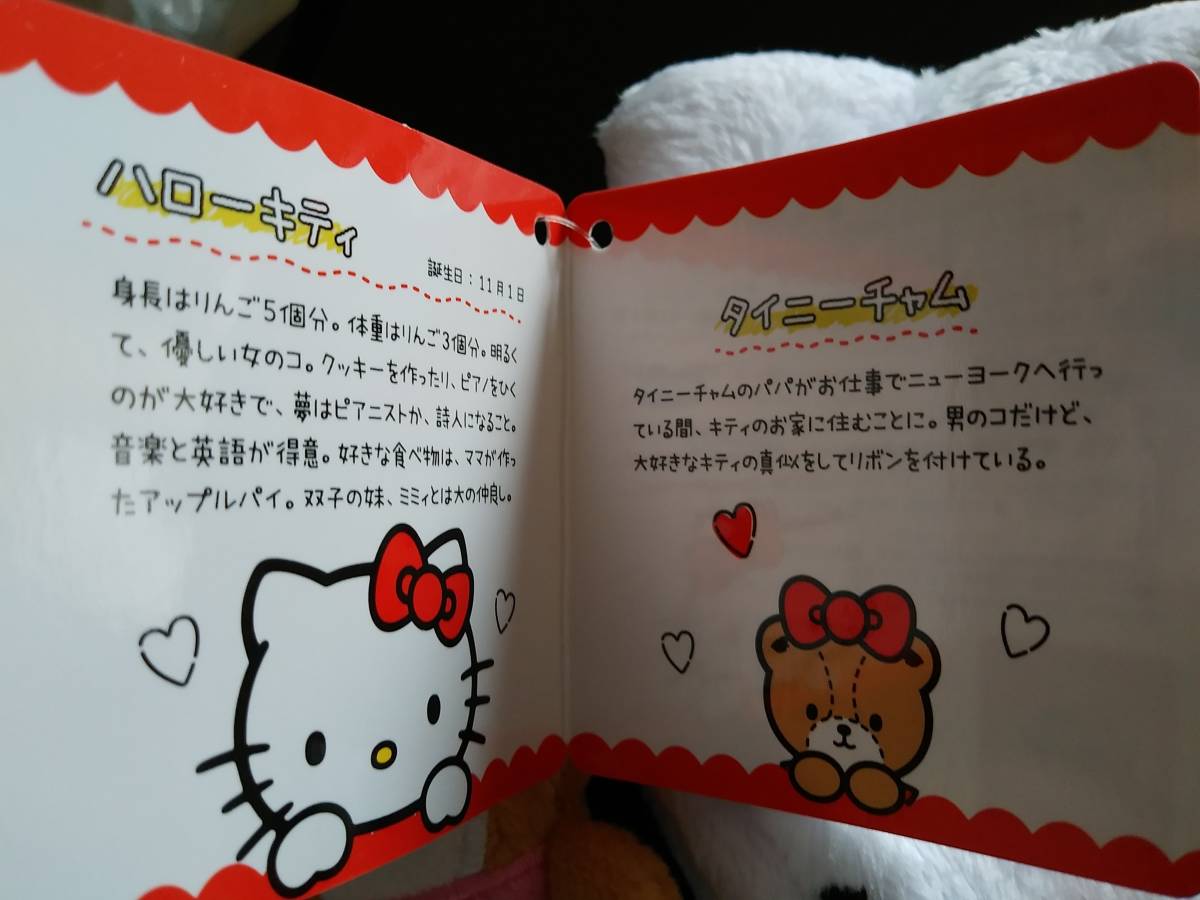 ハローキティ
誕生日：11月1日
身長はりんご5個分。体重はりんご3個分。明るく
て、優しい女のコ。クッキーを作ったり、ピアノをひく
のが大好きで、夢はピアニストか、詩人になること。
音楽と英語が得意。好きな食べ物は、ママが作っ
たアップルパイ。双子の妹、ミミィとは大の仲良し。
タイニーチャム
タイニーチャムのパパがお仕事でニューヨークへ行っ
ている間、キティのお家に住むことに。男のコだけど、
大好きなキティの真似をしてリボンを付けている。